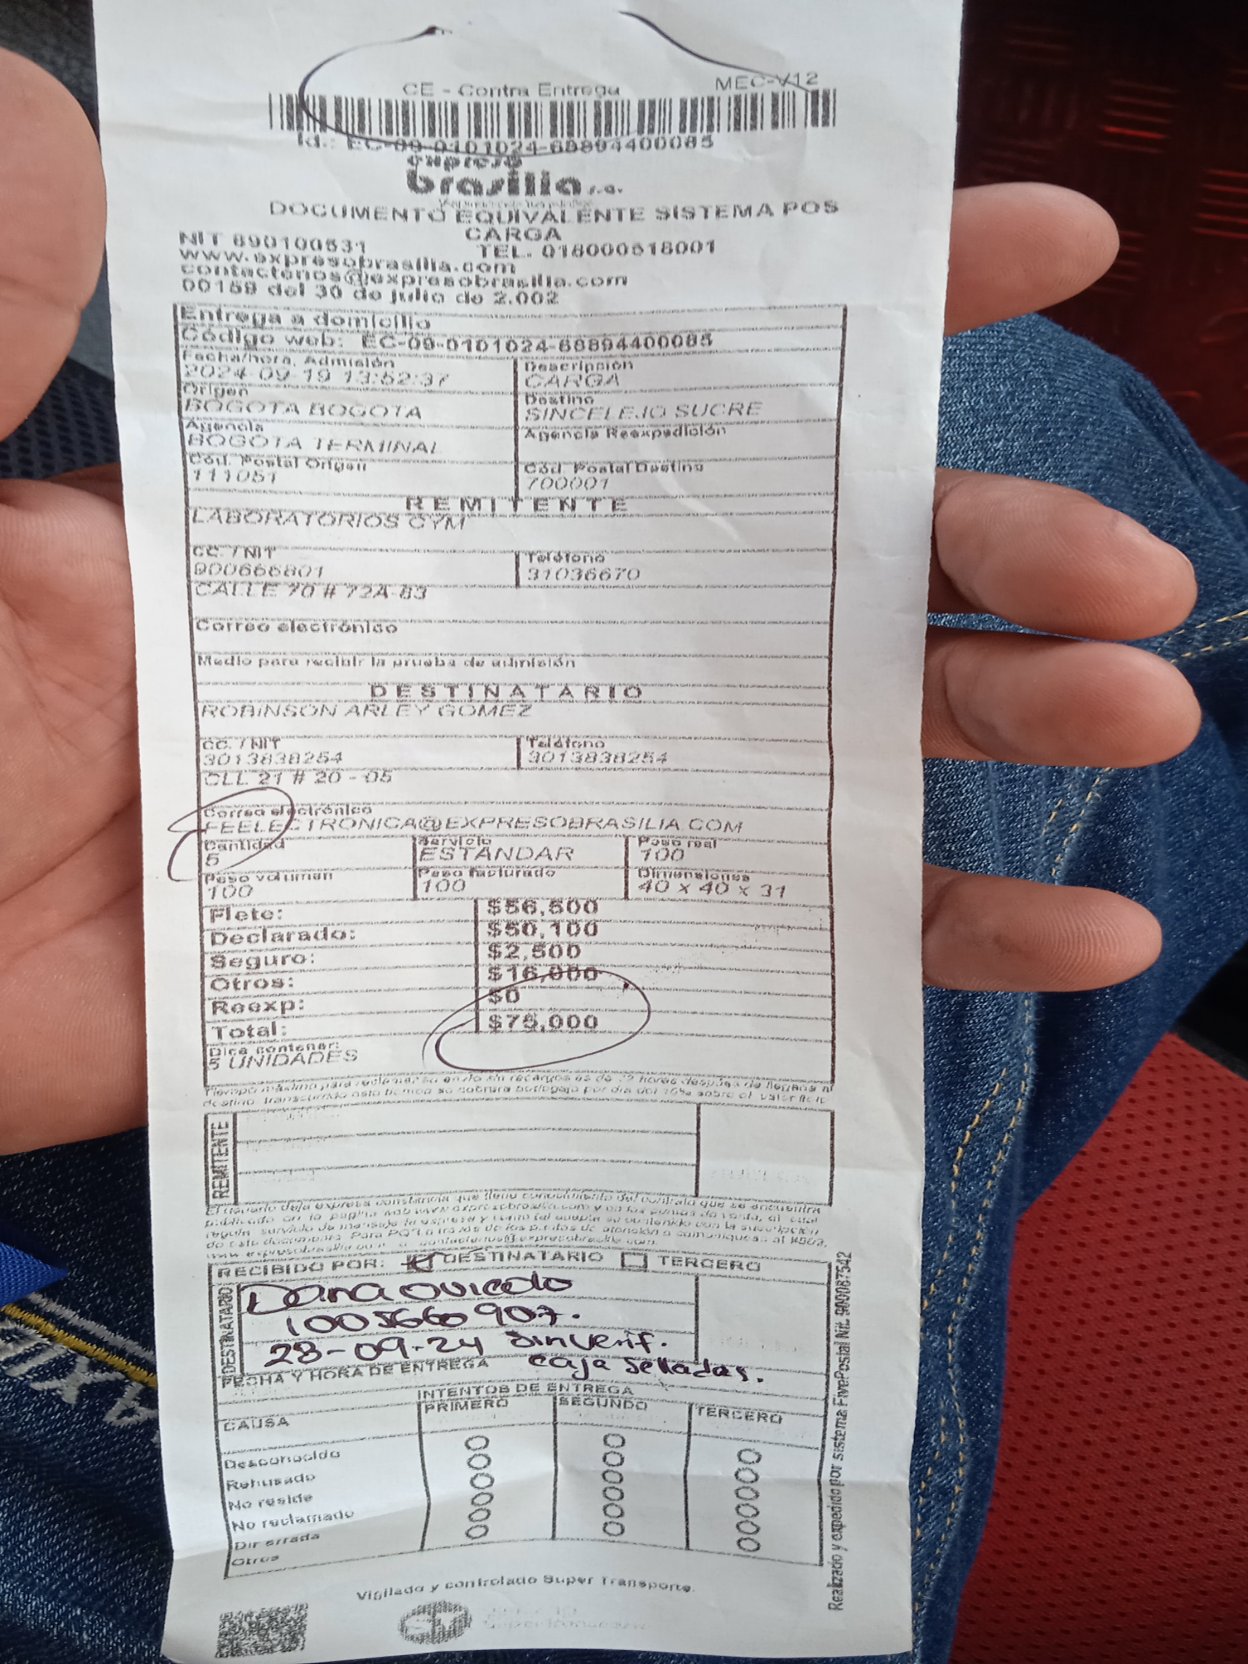 CE - Contra Entrega
MEC-V12
Id.: EC-09-0101024-68894400085
expreso
brasilia s.a.
DOCUMENTO EQUIVALENTE SISTEMA POS
CARGA
NIT 890100531
TEL. 018000518001
www.expresobrasilia.com
contactenos@expresobrasilia.com
00159 del 30 de julio de 2.002
Entrega a domicilio
Código web: EC-09-0101024-68894400085
Fecha/hora. Admisión
Descripción
2024-09-19 13:52:37
CARGA
Origen
Destino
BOGOTA BOGOTA
SINCELEJO SUCRE
Agencia
Agencia Reexpedición
BOGOTA TERMINAL
Cód. Postal Origen
Cód. Postal Destino
111051
700001
REMITENTE
LABORATORIOS GYM
CC. / NIT
Teléfono
900666801
31036670
CALLE 70 # 72A-83
Correo electrónico
Medio para recibir la prueba de admisión
DESTINATARIO
ROBINSON ARLEY GOMEZ
CC. / NIT
Teléfono
3013838254
3013838254
CLL 21 # 20 - 05
Correo electrónico
FEELECTRONICA@EXPRESOBRASILIA.COM
Cantidad
Servicio
Peso real
5
ESTANDAR
100
Peso volumen
Peso facturado
Dimensiones
100
100
40 x 40 x 31
Flete: $56,500
Declarado: $50,100
Seguro: $2,500
Otros: $16,000
Reexp: $0
Total: $75,000
Dice contener:
5 UNIDADES
REMITENTE
El usuario deja expresa constancia que tiene conocimiento del contrato que se encuentra
RECIBIDO POR: DESTINATARIO TERCERO
DESTINATARIO
Dana Oviedo
1005660907.
28-09-24 Sin verif.
caja selladas.
FECHA Y HORA DE ENTREGA
INTENTOS DE ENTREGA
CAUSA
PRIMERO
SEGUNDO
TERCERO
Desconocido
Rehusado
No reside
No reclamado
Dir errada
Otros
Realizado y expedido por sistema FivePostal Nit. 900087542
Vigilado y controlado Super Transporte.